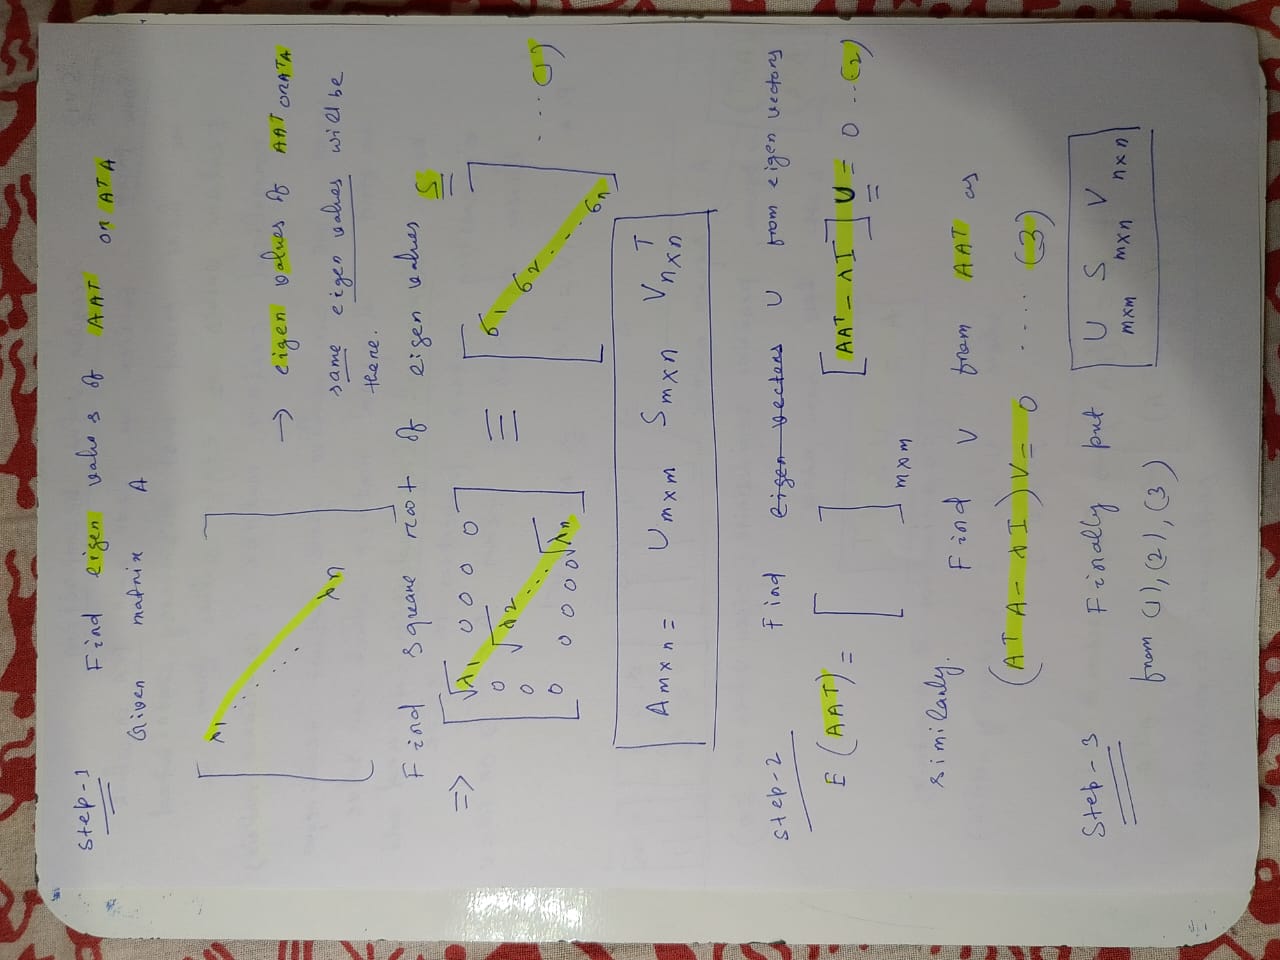 Step-1 Find eigen values of AAT or ATA
Given matrix A
λ1 ..... λn
→ eigen values of AAT or ATA
same eigen values will be
there.
Find square root of eigen values S
⇒ [ √λ1 0 0 0 0
0 √λ2
0 ...
0 0 0 0 √λn ] ≡ [ σ1 σ2 ... σn ] .... (1)
Amxn = Umxm Smxn Vnxn^T
Step-2 Find eigen vectors U from eigen vectors
E (AAT) = [ ]mxm [AAT - λI] U = 0 ... (2)
similarly. Find V from AAT as
(ATA - λI) V = 0 ..... (3)
Step-3 Finally put U mxm S mxn V nxn
from (1), (2), (3)